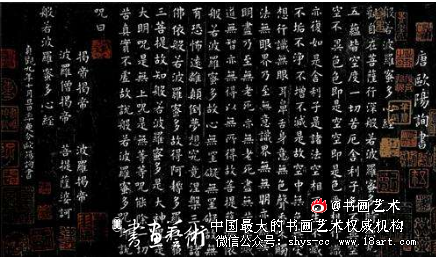 唐歐陽詢書
般若波羅蜜多心經
觀自在菩薩行深般若波羅蜜多時照見
五蘊皆空度一切苦厄舍利子色不異
空空不異色色即是空空即是色受想行識
亦復如是舍利子是諸法空相不生不滅
不垢不淨不增不減是故空中無色無受
想行識無眼耳鼻舌身意無色聲香味觸
法無眼界乃至無意識界無無明亦無無
明盡乃至無老死亦無老死盡無苦集滅
道無智亦無得以無所得故菩提薩埵依
般若波羅蜜多故心無罣礙無罣礙故無
有恐怖遠離顛倒夢想究竟涅槃三世諸
佛依般若波羅蜜多故得阿耨多羅三藐
三菩提故知般若波羅蜜多是大神呪是
大明呪是無上呪是無等等呪能除一切
苦真實不虛故說般若波羅蜜多呪即說
呪曰
揭帝揭帝 波羅揭帝
波羅僧揭帝 菩提薩婆訶
般若波羅蜜多心經
貞觀九年十月旦日率更令歐陽詢書
@书画艺术
書畫藝術
中国最大的书画艺术权威机构
微信公众号：shys-cc www.18art.com